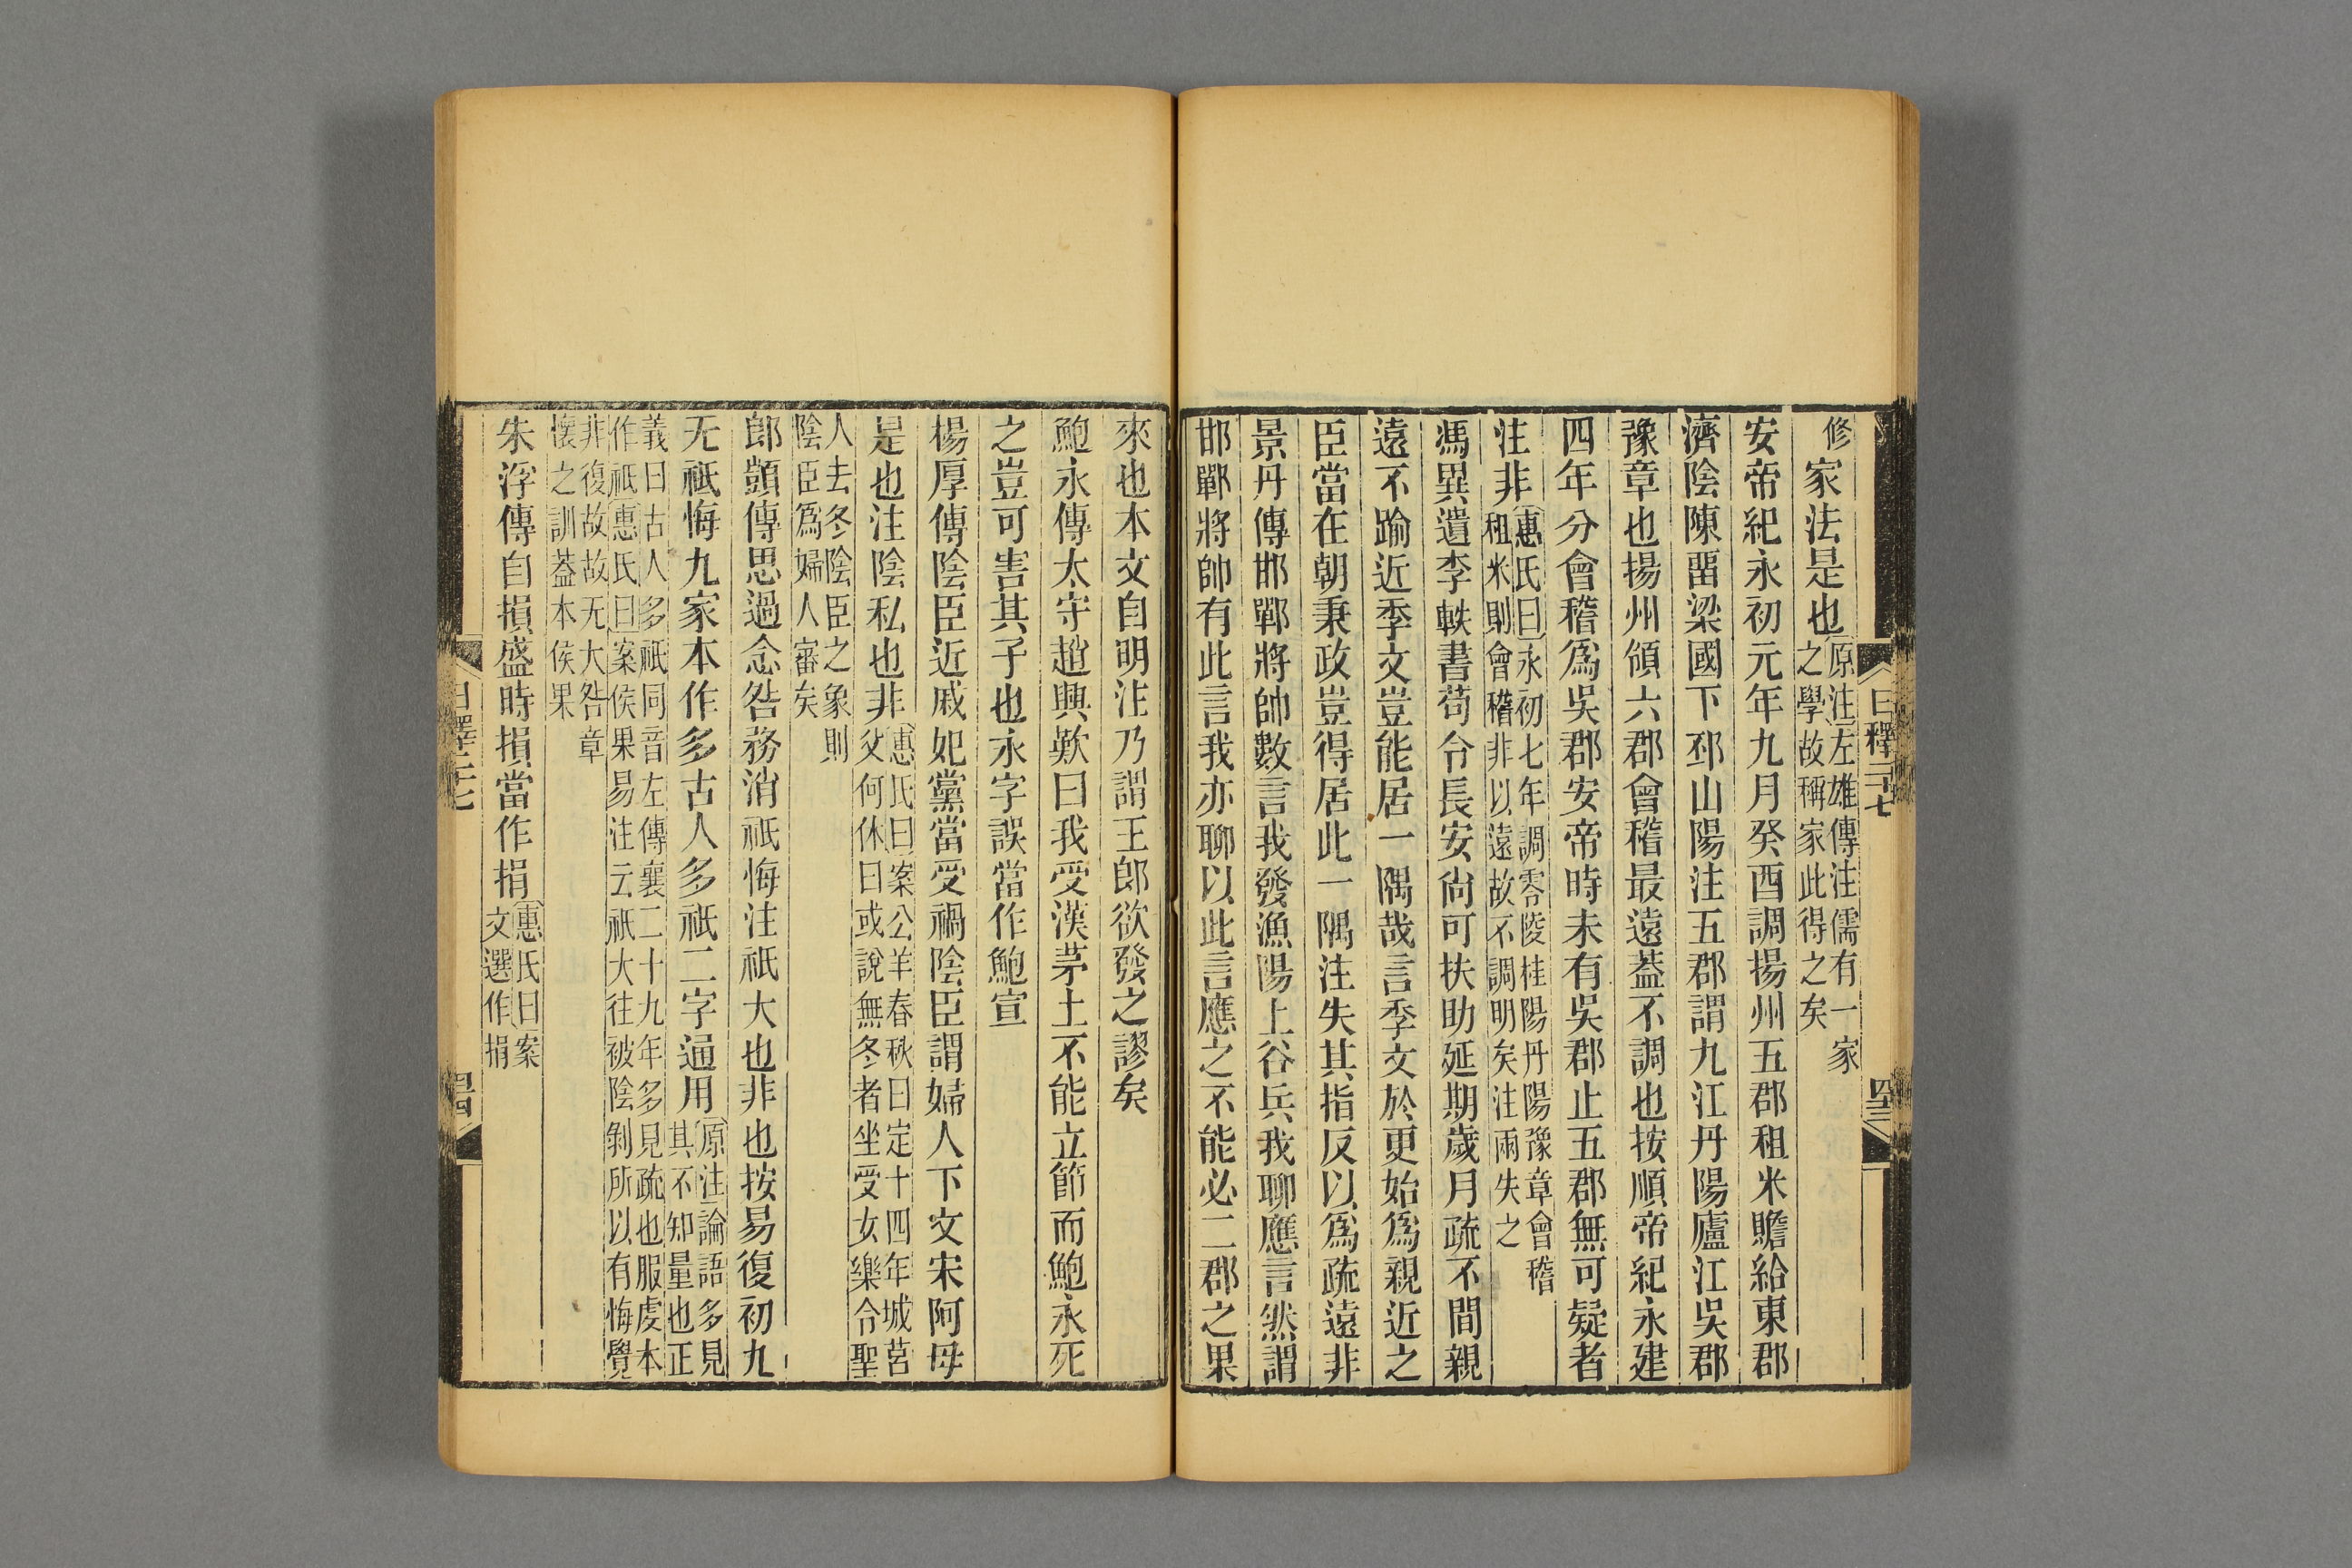 日釋二十七
四三
修家法是也原注左雄傳注儒有一家之學故稱家此得之矣
安帝紀永初元年九月癸酉調揚州五郡租米贍給東郡
濟陰陳畱梁國下邳山陽注五郡謂九江丹陽廬江吳郡
豫章也揚州領六郡會稽最遠葢不調也按順帝紀永建
四年分會稽爲吳郡安帝時未有吳郡止五郡無可疑者
注非惠氏曰永初七年調零陵桂陽丹陽豫章會稽租米則會稽非以遠故不調明矣注兩失之
馮異遺李軼書苟令長安尙可扶助延期歲月疏不間親
遠不踰近季文豈能居一隅哉言季文於更始爲親近之
臣當在朝秉政豈得居此一隅注失其指反以爲疏遠非
景丹傳邯鄲將帥數言我發漁陽上谷兵我聊應言然謂
邯鄲將帥有此言我亦聊以此言應之不能必二郡之果
來也本文自明注乃謂王郎欲發之謬矣
鮑永傳太守趙興歎曰我受漢茅土不能立節而鮑永死
之豈可害其子也永字誤當作鮑宣
楊厚傳陰臣近戚妃黨當受禍陰臣謂婦人下文宋阿母
是也注陰私也非惠氏曰案公羊春秋曰定十四年城莒父何休曰或說無冬者坐受女樂令聖
人去冬陰臣之象則陰臣爲婦人審矣
郎顗傳思過念咎務消祇悔注祇大也非也按易復初九
无祇悔九家本作多古人多祇二字通用原注論語多見其不知量也正
義曰古人多祇同音左傳襄二十九年多見疏也服虔本作祇惠氏曰案侯果易注云祇大往被陰剝所以有悔覺
非復故故无大咎章懷之訓葢本侯果
朱浮傳自損盛時損當作捐惠氏曰案文選作捐
日釋二十七
四四